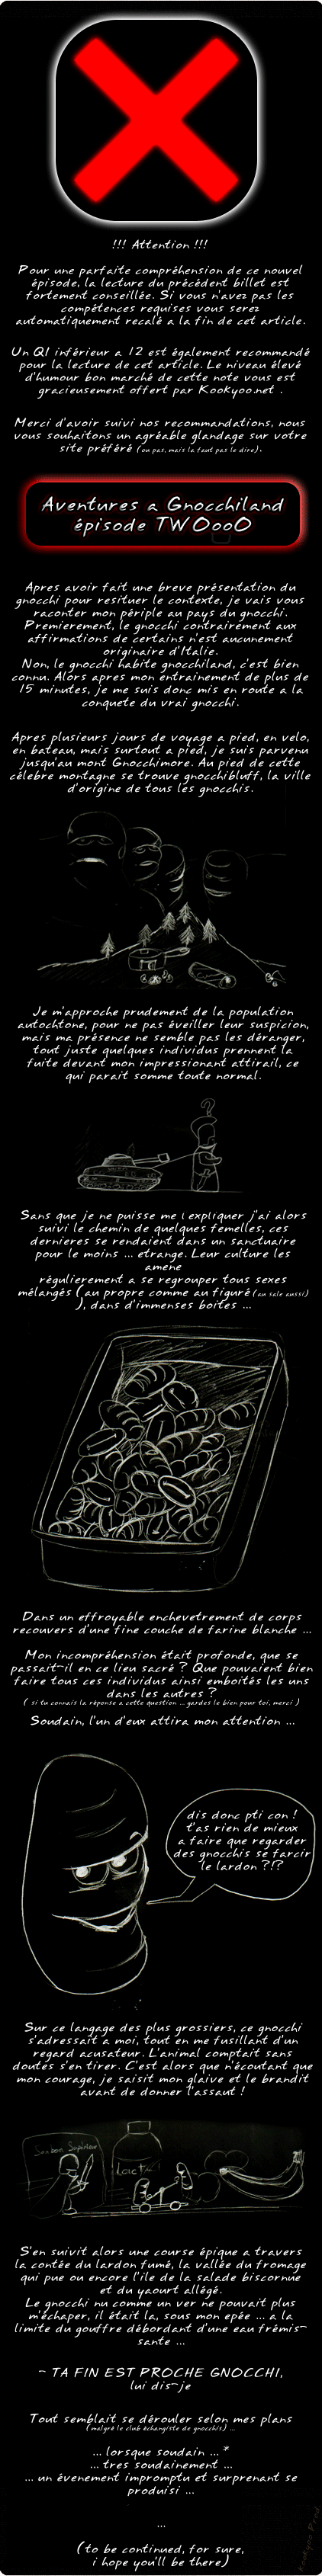 !!! Attention !!!
Pour une parfaite compréhension de ce nouvel
épisode, la lecture du précédent billet est
fortement conseillée. Si vous n'avez pas les
compétences requises vous serez
automatiquement recalé a la fin de cet article.
Un QI inférieur a 12 est également recommandé
pour la lecture de cet article. Le niveau élevé
d'humour bon marché de cette note vous est
gracieusement offert par Kookyoo.net .
Merci d'avoir suivi nos recommandations, nous
vous souhaitons un agréable glandage sur votre
site préféré (ou pas, mais la faut pas le dire).
Aventures a Gnocchiland
épisode TWOooO
Apres avoir fait une breve présentation du
gnocchi pour resituer le contexte, je vais vous
raconter mon périple au pays du gnocchi.
Premierement, le gnocchi contrairement aux
affirmations de certains n'est aucunement
originaire d'Italie.
Non, le gnocchi habite gnocchiland, c'est bien
connu. Alors apres mon entrainement de plus de
15 minutes, je me suis donc mis en route a la
conquete du vrai gnocchi.
Apres plusieurs jours de voyage a pied, en velo,
en bateau, mais surtout a pied, je suis parvenu
jusqu'au mont Gnocchimore. Au pied de cette
célebre montagne se trouve gnocchibluff, la ville
d'origine de tous les gnocchis.
Je m'approche prudement de la population
autochtone, pour ne pas éveiller leur suspicion,
mais ma présence ne semble pas les déranger,
tout juste quelques individus prennent la
fuite devant mon impressionant attirail, ce
qui parait somme toute normal.
?
Sans que je ne puisse me l expliquer j'ai alors
suivi le chemin de quelques femelles, ces
dernieres se rendaient dans un sanctuaire
pour le moins ... etrange. Leur culture les
amene
régulierement a se regrouper tous sexes
mélangés (au propre comme au figuré(au sale aussi)
), dans d'immenses boites ...
Dans un effroyable enchevetrement de corps
recouvers d'une fine couche de farine blanche ...
Mon incompréhension était profonde, que se
passait-il en ce lieu sacré ? Que pouvaient bien
faire tous ces individus ainsi emboités les uns
dans les autres ?
( si tu connais la réponse a cette question ... gardes le bien pour toi, merci )
Soudain, l'un d'eux attira mon attention ...
dis donc pti con !
t'as rien de mieux
a faire que regarder
des gnocchis se farcir
le lardon ?!?
Sur ce langage des plus grossiers, ce gnocchi
s'adressait a moi, tout en me fusillant d'un
regard acusateur. L'animal comptait sans
doutes s'en tirer. C'est alors que n'écoutant que
mon courage, je saisit mon glaive et le brandit
avant de donner l'assaut !
S'en suivit alors une course épique a travers
la contée du lardon fumé, la vallée du fromage
qui pue ou encore l'ile de la salade biscornue
et du yaourt allégé.
Le gnocchi nu comme un ver ne pouvait plus
m'échaper, il était la, sous mon epée ... a la
limite du gouffre débordant d'une eau frémis-
sante ...
- TA FIN EST PROCHE GNOCCHI,
lui dis-je
Tout semblait se dérouler selon mes plans
(malgré le club échangiste de gnocchis) ...
... lorsque soudain ... *
... tres soudainement ...
... un évenement impromptu et surprenant se
produisi ...
...
(to be continued, for sure,
i hope you'll be there)
Kookyoo Prod